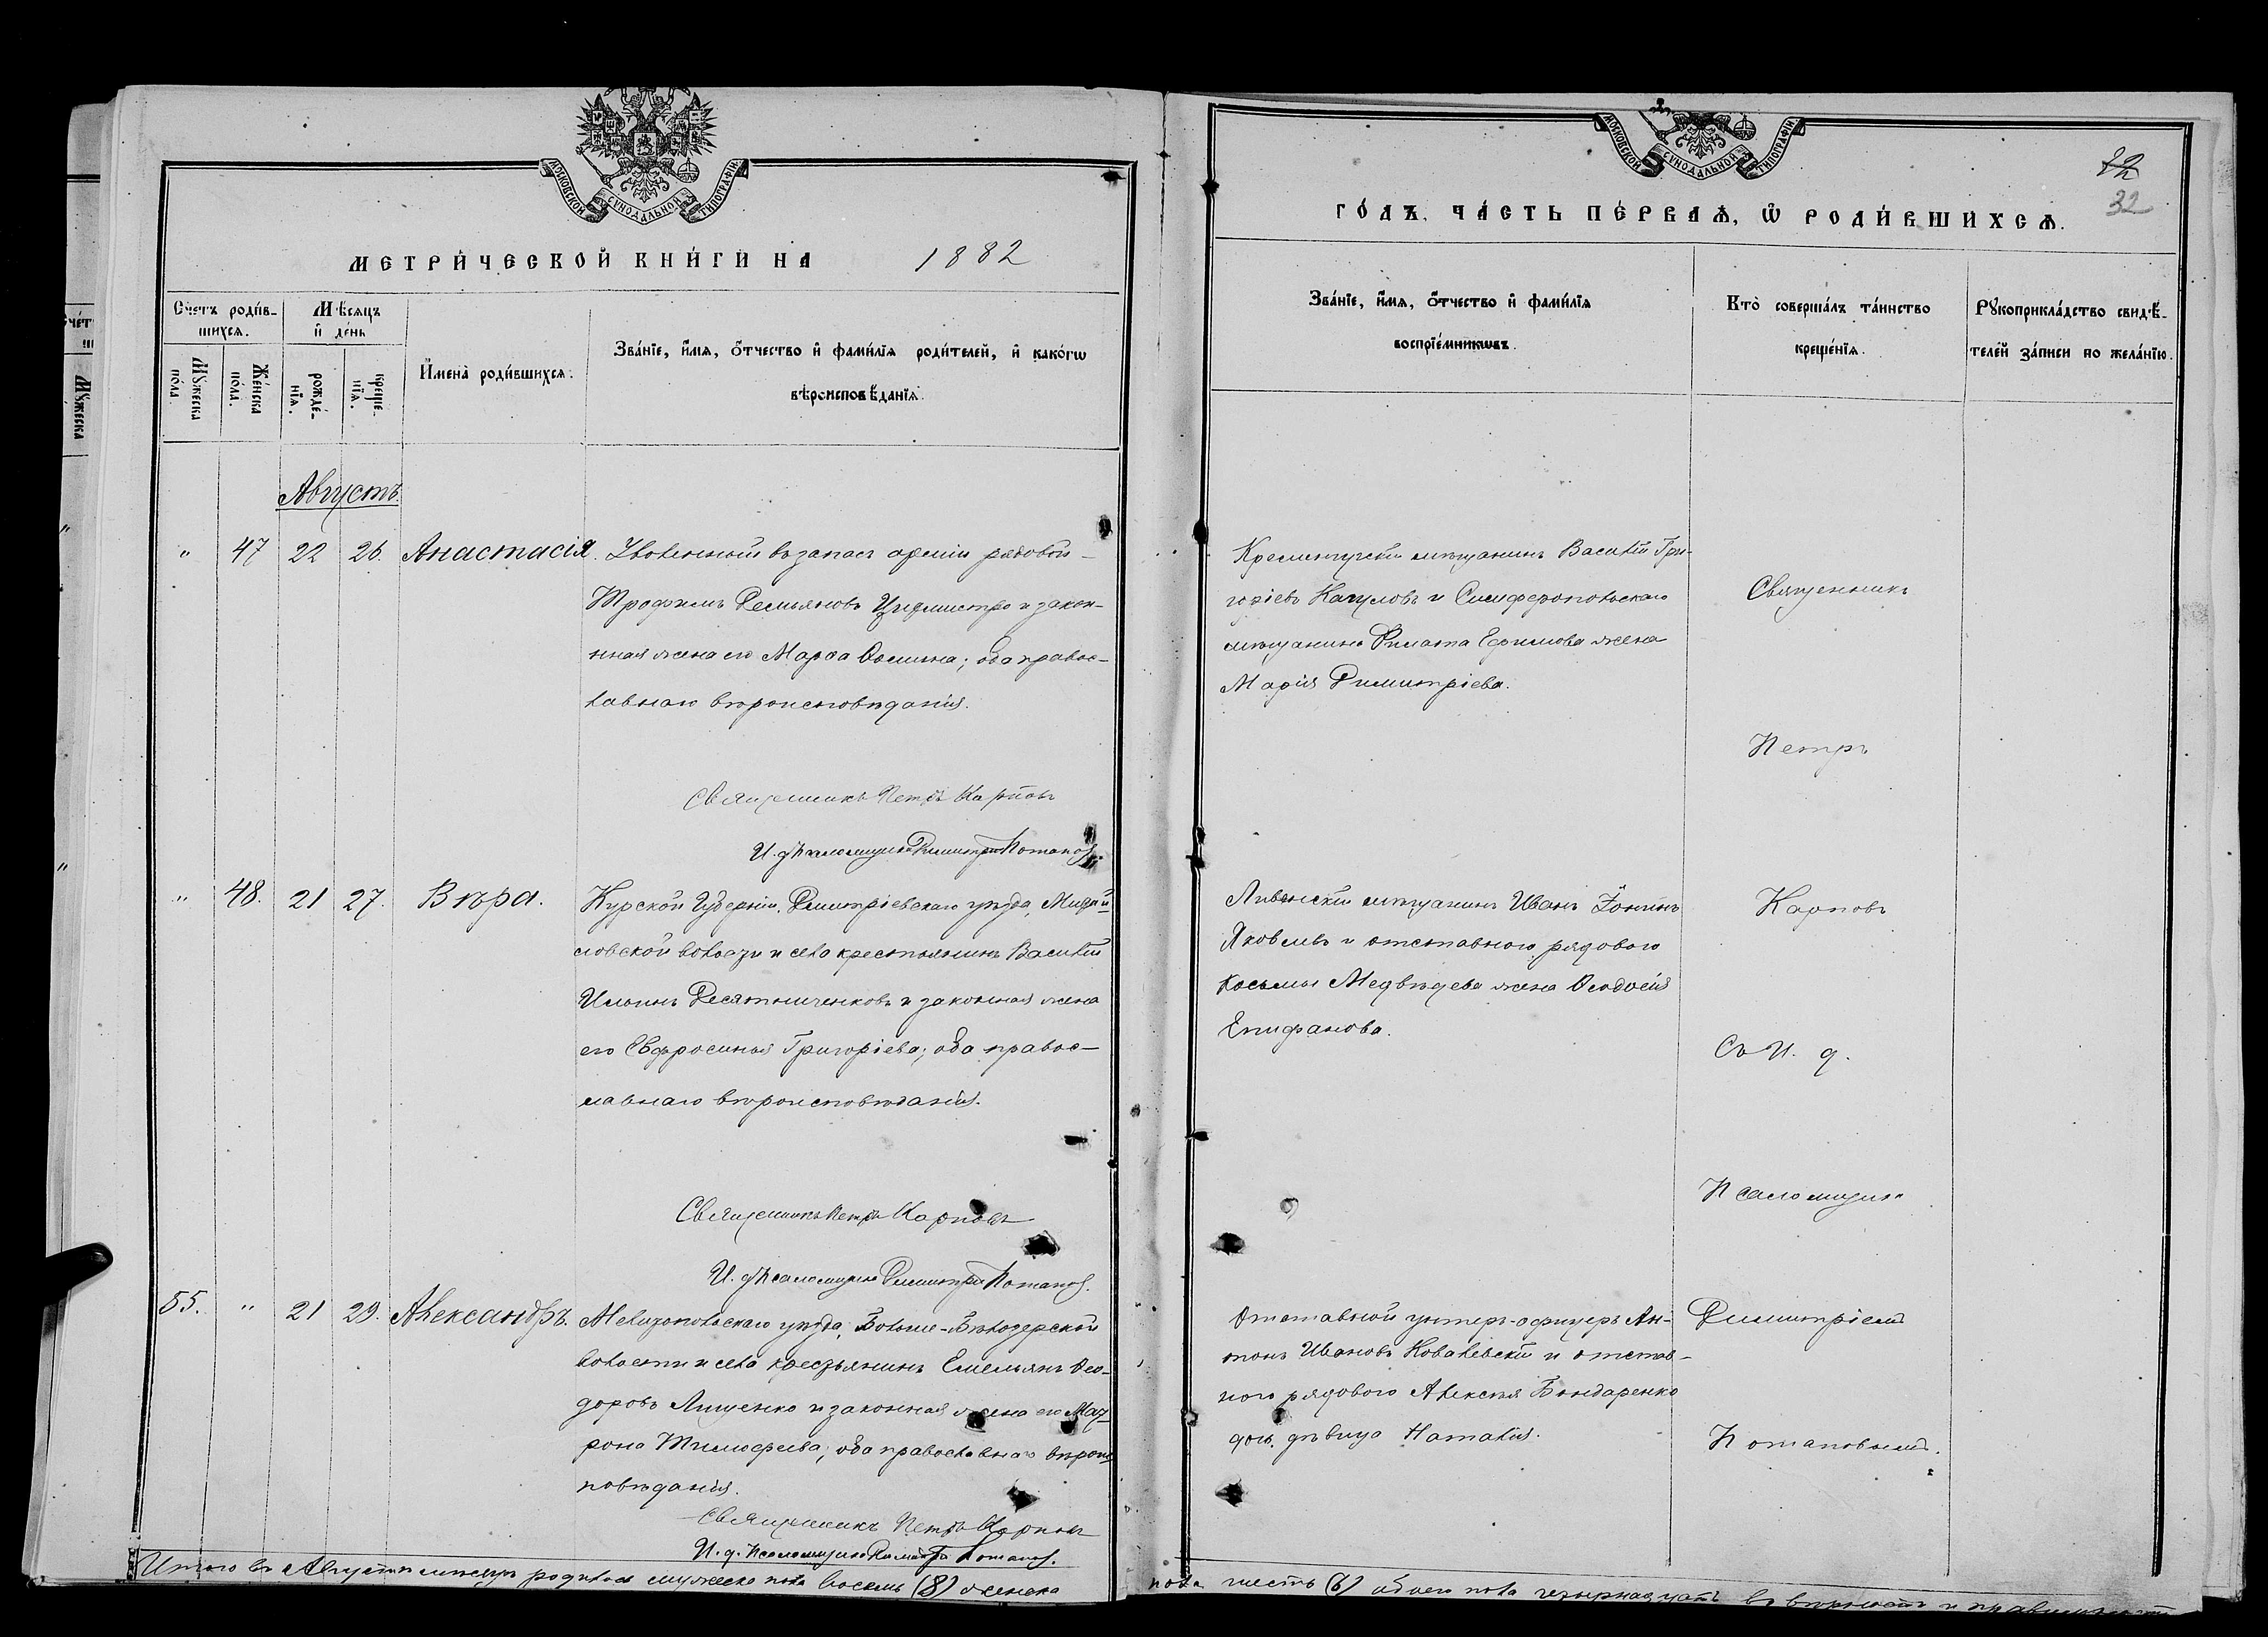 МОСКОВСКОЙ СѴНОДАЛЬНОЙ ТИПОГРАФІИ
МЕТРИ́ЧЕСКОЙ КНИ́ГИ НА 1882
Сче́тъ роди́в-
шихся.
Мѣ́сяцъ
и҆ де́нь
Мꙋ́жеска
по́ла.
Же́нска
по́ла.
рожде́-
нїѧ.
креще́-
нїѧ.
И҆мена̀ роди́вшихсѧ.
Зва́нїе, и҆́мѧ, ѻ҆́тчество и҆ фами́лїѧ роди́телей, и҆ како́гѡ
вѣроисповѣ́данїѧ.
Августъ.
" 47 22 26. Анастасія. Уволенный въ запасъ арміи рядовой
Трофимъ Демьяновъ и закон-
ная жена его Марѳа Ѳомина; оба правос-
лавнаго вѣроисповѣданія.
Священникъ Петръ Карповъ
И. д. псаломщика Димитрій Потапов.
" 48. 21 27. Вѣра. Курской Губерніи, Димитріевскаго уѣзда,
словской волости и села крестьянинъ Василій
Ильинъ Десятниченковъ и законная жена
его Евфросинья Григоріева; оба правос-
лавнаго вѣроисповѣданія.
Священникъ Петръ Карповъ
И. д. псаломщика Димитрій Потапов.
55. " 21 29. Александръ. Мелитопольскаго уѣзда, Больше-Бѣлозерской
волости и села крестьянинъ Емельянъ Ѳео-
доровъ Лященко и законная жена его Мат-
рона Тимоѳеева; оба православнаго вѣроис-
повѣданія.
Священникъ Петръ Карповъ
И. д. псаломщика Димитрій Потапов.
Итого въ Августѣ мѣсяцѣ родилось мужеска пола восемь (8) женска
МОСКОВСКОЙ СѴНОДАЛЬНОЙ ТИПОГРАФІИ
32
ГО́ДЪ, ЧА́СТЬ ПЕ́РВАѦ, Ѽ РОДИ́ВШИХСѦ.
Зва́нїе, и҆́мѧ, ѻ҆́тчество и҆ фами́лїѧ
воспрїе́мникѡвъ.
Кто̀ соверша́лъ та́инство
креще́нїѧ.
Рꙋкоприкла́дство свидѣ́-
телей за́писи по жела́нїю.
Кременчугскій мѣщанинъ Василій Гри-
горіевъ и Симферопольскаго
мѣщанина Филата Ефимова жена
Марія Димитріева.
Священникъ
Петръ
Ливенскій мѣщанинъ Иванъ
Яковлевъ и отставного рядового
Косьмы Медвѣдева жена Ѳеодосія
Епифанова.
Карповъ
Съ И. д.
Псаломщика
Отставной унтеръ-офицеръ Ан-
тонъ Ивановъ Ковалевскій и отстав-
ного рядового Алексѣя Бондаренко
дочь дѣвица Наталія.
Димитріемъ
Потаповымъ.
пола шесть (6) обоего пола четырнадцать